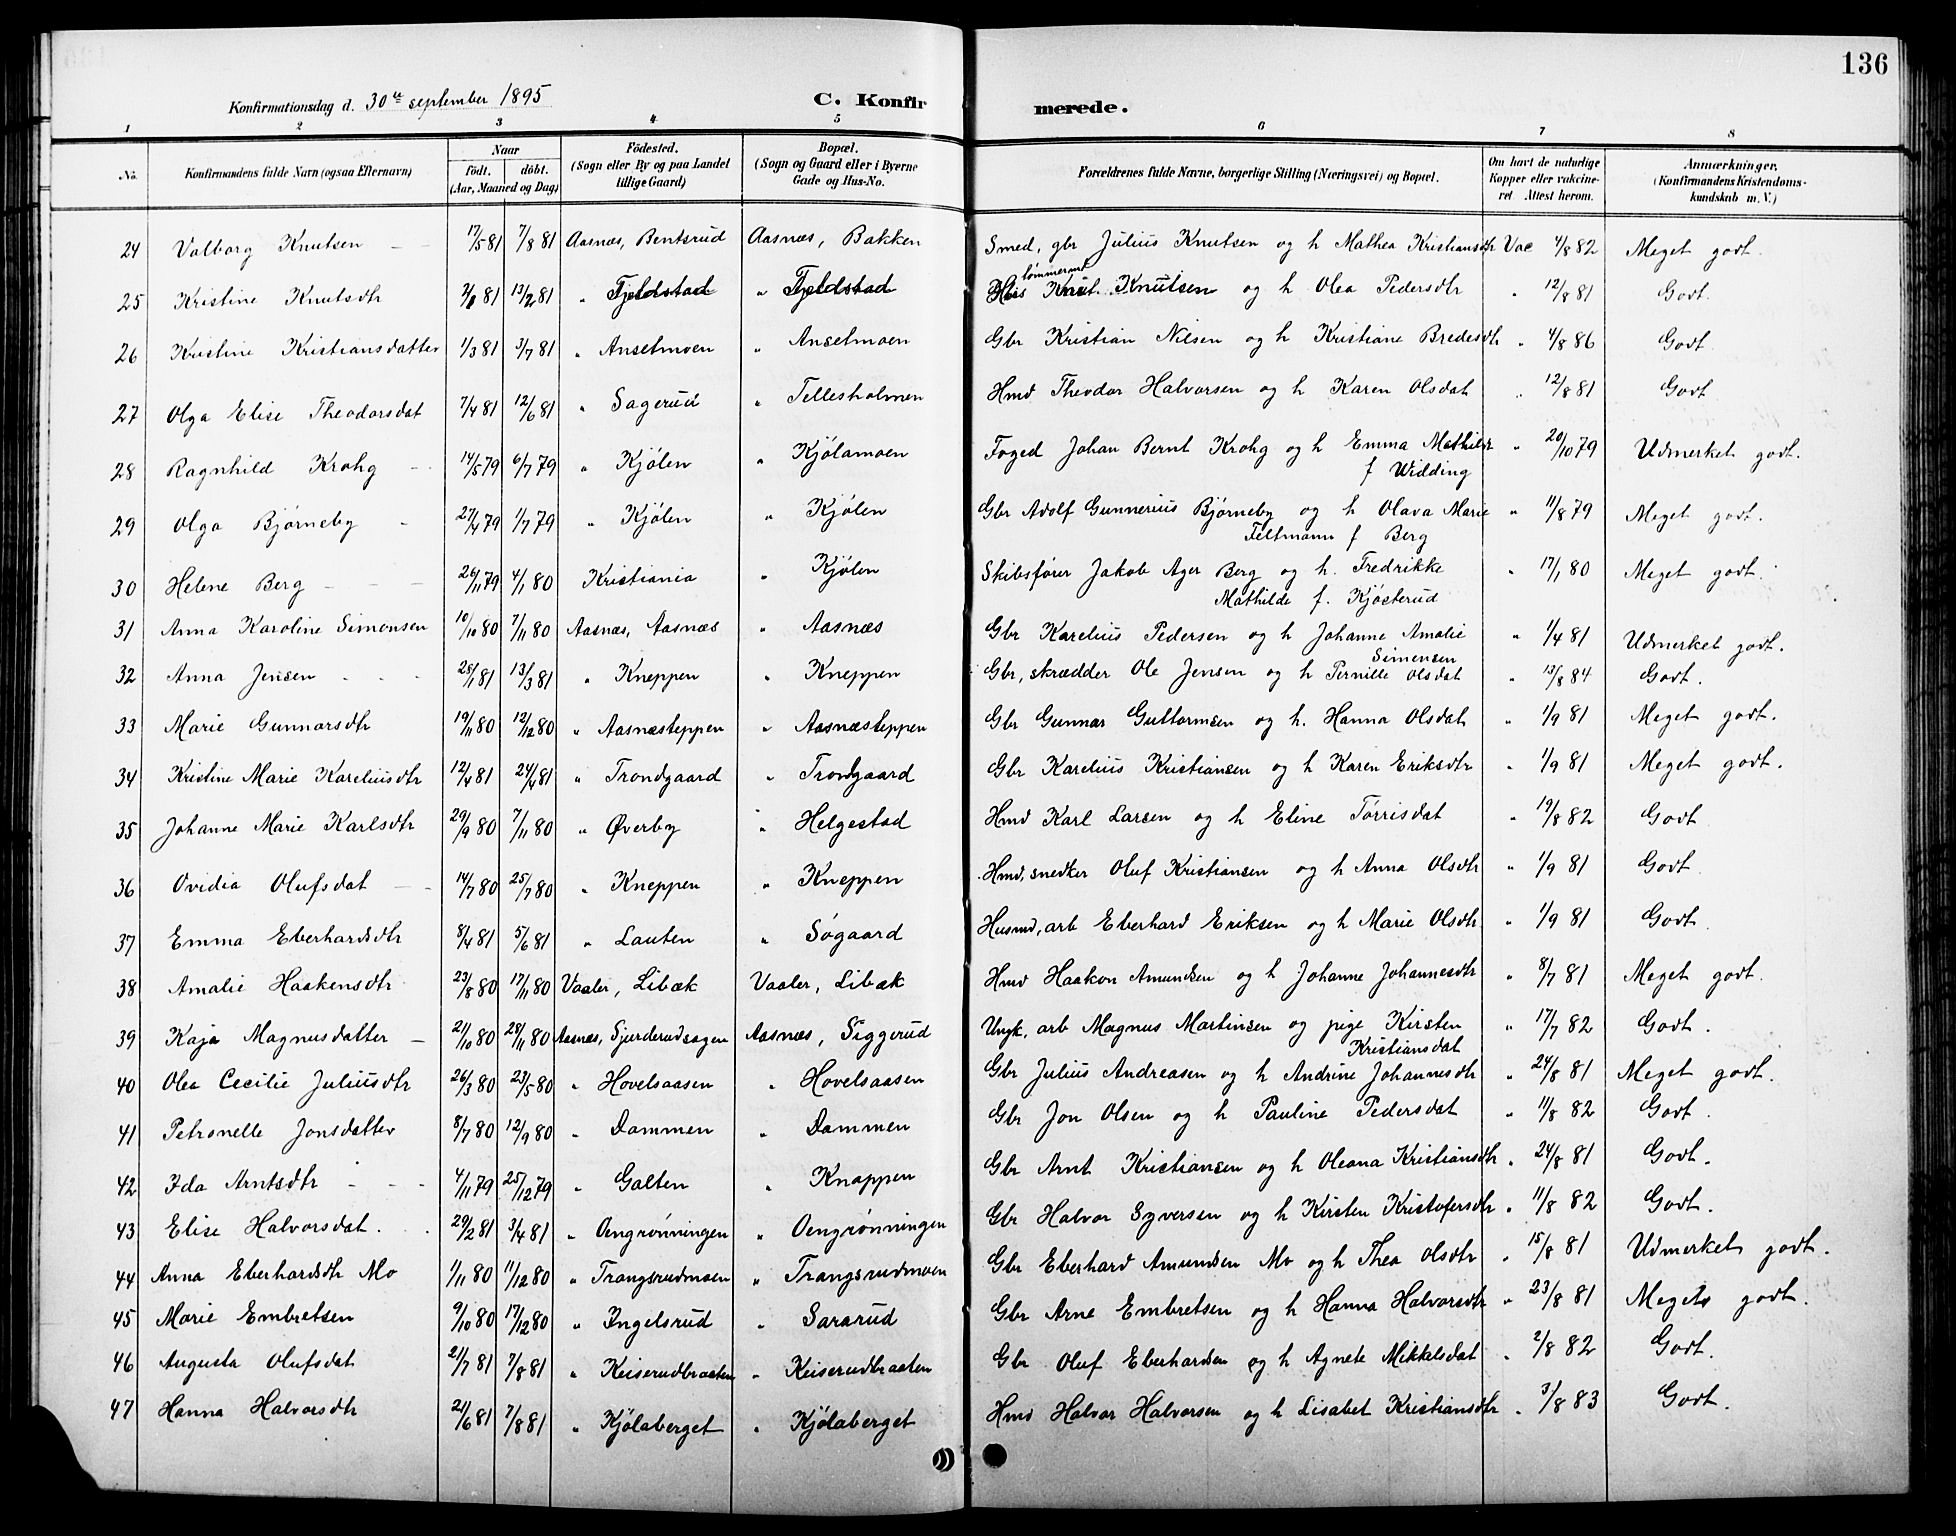 136
Konfirmationsdag d. 30te september 1895 C. Konfirmerede.
1 2 3 4 5 6 7 8
No. Konfirmandens fulde Navn (ogsaa Efternavn) Naar födt. döbt. (Aar, Maaned og Dag) Födested. (Sogn eller By og paa Landet tillige Gaard) Bopæl. (Sogn og Gaard eller i Byerne Gade og Hus-No. Forældrenes fulde Navne, borgerlige Stilling (Næringsvei) og Bopæl. Om havt de naturlige Kopper eller vakcineret Attest herom. Anmærkninger. (Konfirmandens Kristendomskundskab m. V.)
24 Valborg Knutsen 17/5 81 7/8 81 Aasnæs, Bentsrud Aasnæs, Bakken Smed, gbr Julius Knutsen og h Mathea Kristiansdtr Vac 4/8 82 Meget godt.
25 Kristine Knutsdtr 81 13/2 81 " Fjeldstad " Fjeldstad tömmermd Knut Knutsen og h Olea Pedersdtr " 12/8 81 Godt.
26 Kristine Kristiansdatter 1/3 81 3/7 81 " Anselmoen " Anselmoen Gbr Kristian Nilsen og h Kristiane Bredesdtr " 4/8 86 Godt.
27 Olga Elise Theodorsdat 7/4 81 12/6 81 " Sagerud " Tellesholmen Hmd Theodor Halvorsen og h Karen Olsdat " 12/8 81 Godt.
28 Ragnhild Krohg 14/5 79 6/7 79 " Kjölen " Kjölamoen Foged Johan Bernt Krohg og h Emma Mathilde f Widding " 20/10 79 Udmerket godt.
29 Olga Bjørneby 27/4 79 1/7 79 " Kjölen " Kjölen Gbr Adolf Gunnerius Bjørneby og h Olava Marie Feltmann f Berg " 11/8 79 Meget godt.
30 Helene Berg 26/11 79 4/1 80 Kristiania " Kjölen Skibsfører Jakob Ager Berg og h. Fredrikke Mathilde f. Kjösterud " 17/1 80 Meget godt.
31 Anna Karoline Simensen 10/10 80 7/11 80 Aasnæs, Aasnæs " Aasnæs Gbr Karelius Pedersen og h Johanne Amalie Simensen " 1/4 81 Udmerket godt.
32 Anna Jensen 28/1 81 13/3 81 " Kneppen " Kneppen Gbr, skrædder Ole Jensen og h Pernille Olsdat " 13/8 84 Godt.
33 Marie Gunnarsdtr 19/11 80 12/12 80 " Aasnæsteppen " Aasnæsteppen Gbr Gunnar Guttormsen og h. Hanna Olsdat " 1/9 81 Meget godt.
34 Kristine Marie Kareliusdtr 12/4 81 24/4 81 " Trondgaard " Trondgaard Gbr Karelius Kristiansen og h Karen Eriksdtr " 1/9 81 Meget godt.
35 Johanne Marie Karlsdtr 29/9 80 7/11 80 " Øverby " Helgestad Hmd Karl Larsen og h Eline Törrisdat " 19/8 82 Godt
36 Ovidia Olufsdat 14/7 80 25/7 80 " Kneppen " Kneppen Hmd, snedker Oluf Kristiansen og h Anna Olsdtr " 1/9 81 Godt.
37 Emma Eberhardsdtr 8/4 81 5/6 81 " Lauten " Sögaard Husmd, arb Eberhard Eriksen og h Marie Olsdtr " 1/9 81 Godt.
38 Amalie Haakensdtr 23/8 80 17/11 80 Vaaler, Libæk Vaaler, Libæk Hmd Haakon Amundsen og h Johanne Johannesdtr " 8/7 81 Meget godt.
39 Kaja Magnusdatter 21/10 80 28/11 80 Aasnæs, Sjurderudsagen Aasnæs, Siggerud Ungk, arb Magnus Martinsen og pige Kirsten Kristiansdat " 17/7 82 Godt.
40 Olea Cecilie Juliusdtr 26/3 80 23/5 80 " Hovelsaasen " Hovelsaasen Gbr Julius Andreasen og h Andrine Johannesdtr " 24/8 81 Meget godt.
41 Petronelle Jonsdatter 8/7 80 12/9 80 " Dammen " Dammen Gbr Jon Olsen og h Pauline Pedersdat " 11/8 82 Godt.
42 Ida Arntsdtr 4/11 79 25/12 79 " Galten " Knappen Gbr Arnt Kristiansen og h Oleana Kristiansdtr " 24/8 81 Godt.
43 Elise Halvorsdat. 29/2 81 3/4 81 " Oengrönningen " Oengrönningen Gbr Halvor Syversen og h Kirsten Kristofersdtr " 11/8 82 Godt.
44 Anna Eberhardsdtr Mo 1/11 80 11/12 80 " Trangsrudmoen " Trangsrudmoen Gbr Eberhard Amundsen Mo og h Thea Olsdtr " 15/8 81 Udmerket godt.
45 Marie Embretsen 9/10 80 17/12 80 " Ingelsrud " Sararud Gbr Arne Embretsen og h Hanna Halvorsdtr " 23/8 81 Megets godt.
46 Augusta Olufsdat 21/7 81 7/8 81 " Keiserudbraaten " Keiserudbraaten Gbr Oluf Eberhardsen og h Agnete Mikkelsdat " 2/8 82 Godt.
47 Hanna Halvorsdtr 21/6 81 7/8 81 " Kjölaberget " Kjölaberget Hmd Halvor Halvorsen og h Lisabet Kristiansdtr " 3/8 83 Godt.